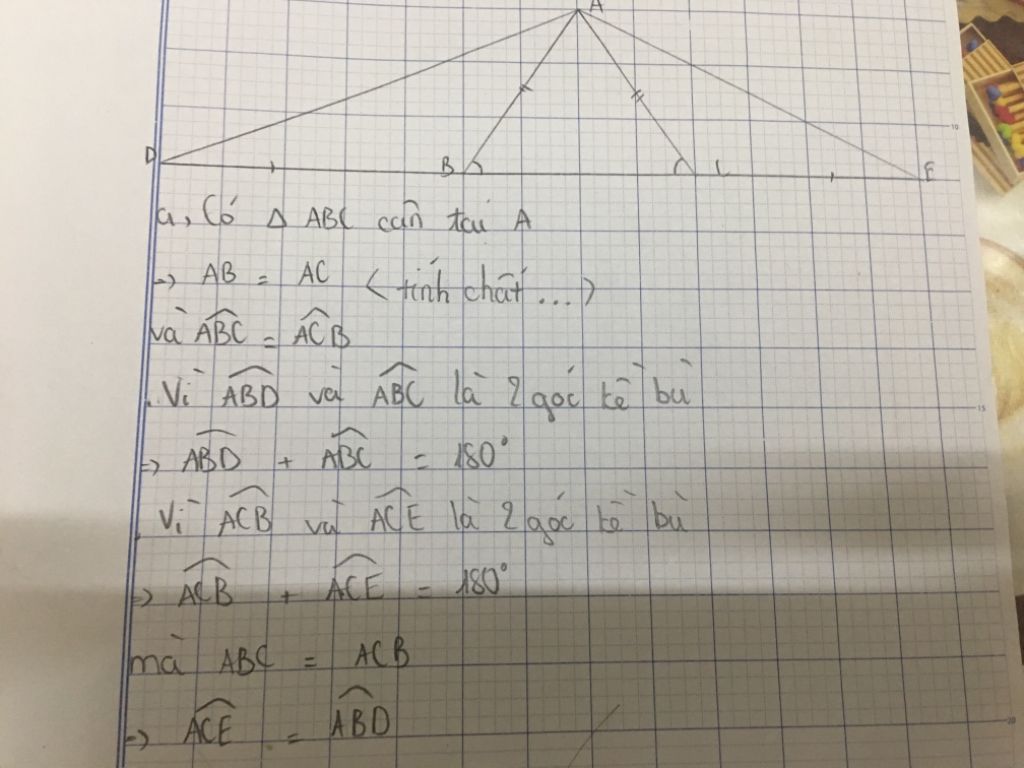 A
D B C E
10
a, Có Δ ABC cân tại A
=> AB = AC < tính chất ... >
và ABC = ACB
. Vì ABD và ABC là 2 góc kề bù
15
=> ABD + ABC = 180°
. Vì ACB và ACE là 2 góc kề bù
=> ACB + ACE = 180°
mà ABC = ACB
20
=> ACE = ABD